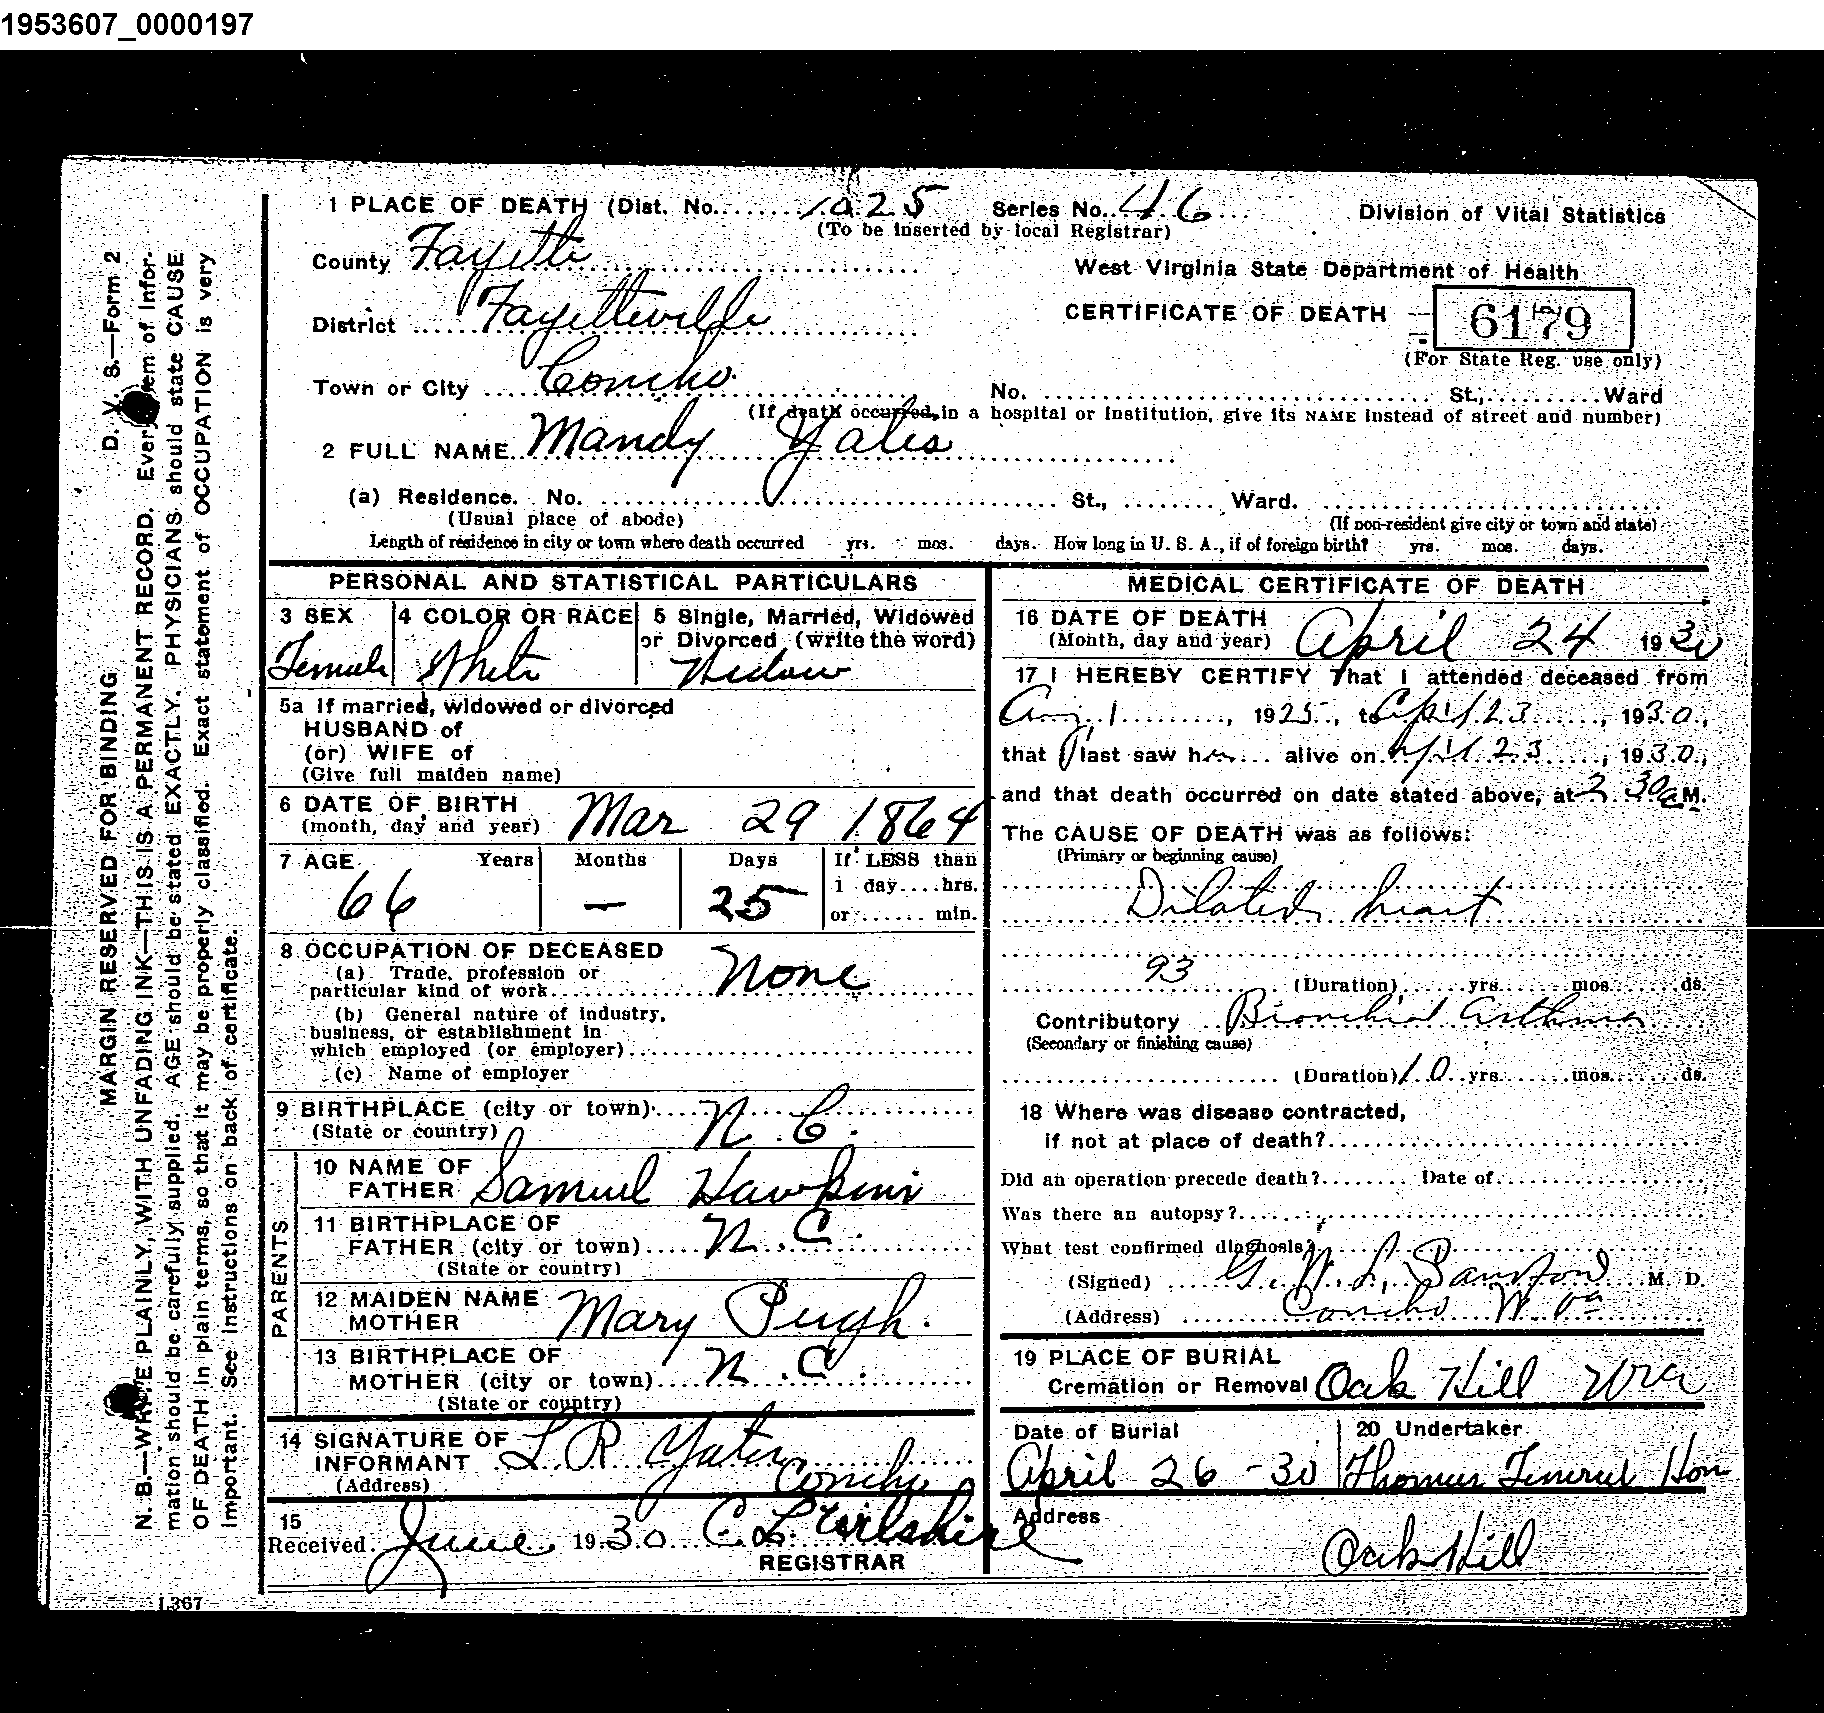 1953607_0000197
1 PLACE OF DEATH (Dist. No. 1025 Series No. 46 Division of Vital Statistics
(To be inserted by local Registrar)
County Fayette West Virginia State Department of Health
District Fayetteville CERTIFICATE OF DEATH 6179
(For State Reg. use only)
Town or City Concho No. St., Ward
(If death occurred in a hospital or institution, give its NAME instead of street and number)
2 FULL NAME Mandy Yates
(a) Residence. No. St., Ward.
(Usual place of abode) (If non-resident give city or town and state)
Length of residence in city or town where death occurred yrs. mos. days. How long in U. S. A., if of foreign birth? yrs. mos. days.
PERSONAL AND STATISTICAL PARTICULARS
3 SEX 4 COLOR OR RACE 5 Single, Married, Widowed
or Divorced (write the word)
Female White Widow
5a If married, widowed or divorced
HUSBAND of
(or) WIFE of
(Give full maiden name)
6 DATE OF BIRTH
(month, day and year) Mar 29 1864
7 AGE Years Months Days If LESS than
1 day....hrs.
66 — 25 or ...... min.
8 OCCUPATION OF DECEASED
(a) Trade, profession or
particular kind of work None
(b) General nature of industry,
business, or establishment in
which employed (or employer)
(c) Name of employer
9 BIRTHPLACE (city or town) N. C.
(State or country)
PARENTS
10 NAME OF
FATHER Samuel Hawkins
11 BIRTHPLACE OF
FATHER (city or town) N. C.
(State or country)
12 MAIDEN NAME
MOTHER Mary Pugh.
13 BIRTHPLACE OF
MOTHER (city or town) N. C.
(State or country)
14 SIGNATURE OF
INFORMANT L R Yates
(Address) Concho
15
Received June 1930 C. L. Wilshire
REGISTRAR
MEDICAL CERTIFICATE OF DEATH
16 DATE OF DEATH
(Month, day and year) April 24 1930
17 I HEREBY CERTIFY That I attended deceased from
Aug. 1, 1925, to April 23, 1930,
that I last saw her alive on April 23, 1930,
and that death occurred on date stated above, at 2.30 a.M.
The CAUSE OF DEATH was as follows:
(Primary or beginning cause)
Dilated heart
93
(Duration) yrs. mos. ds.
Contributory Bronchial asthma
(Secondary or finishing cause)
(Duration) 10 yrs. mos. ds.
18 Where was disease contracted,
if not at place of death?
Did an operation precede death? Date of
Was there an autopsy?
What test confirmed diagnosis?
(Signed) G. W. L. M. D.
(Address) Concho W Va
19 PLACE OF BURIAL
Cremation or Removal Oak Hill W Va
Date of Burial 20 Undertaker
April 26 - 30 Thomas Funeral Hom
Address
Oak Hill
D. V. S.—Form 2
MARGIN RESERVED FOR BINDING
N. B.—WRITE PLAINLY, WITH UNFADING INK—THIS IS A PERMANENT RECORD. Every item of infor-
mation should be carefully supplied. AGE should be stated EXACTLY. PHYSICIANS should state CAUSE
OF DEATH in plain terms, so that it may be properly classified. Exact statement of OCCUPATION is very
important. See instructions on back of certificate.
1367